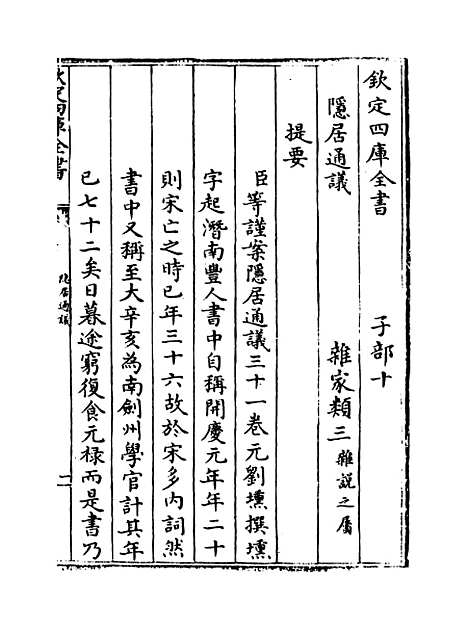 欽定四庫全書 子部十
隱居通議 雜家類三 雜說之屬
提要
臣等謹案隱居通議三十一卷元劉壎撰壎
字起潛南豐人書中自稱開慶元年年二十
則宋亡之時已年三十六故於宋多內詞然
書中又稱至大辛亥為南劍州學官計其年
已七十二矣日暮途窮復食元祿而是書乃
欽定四庫全書
隱居通議